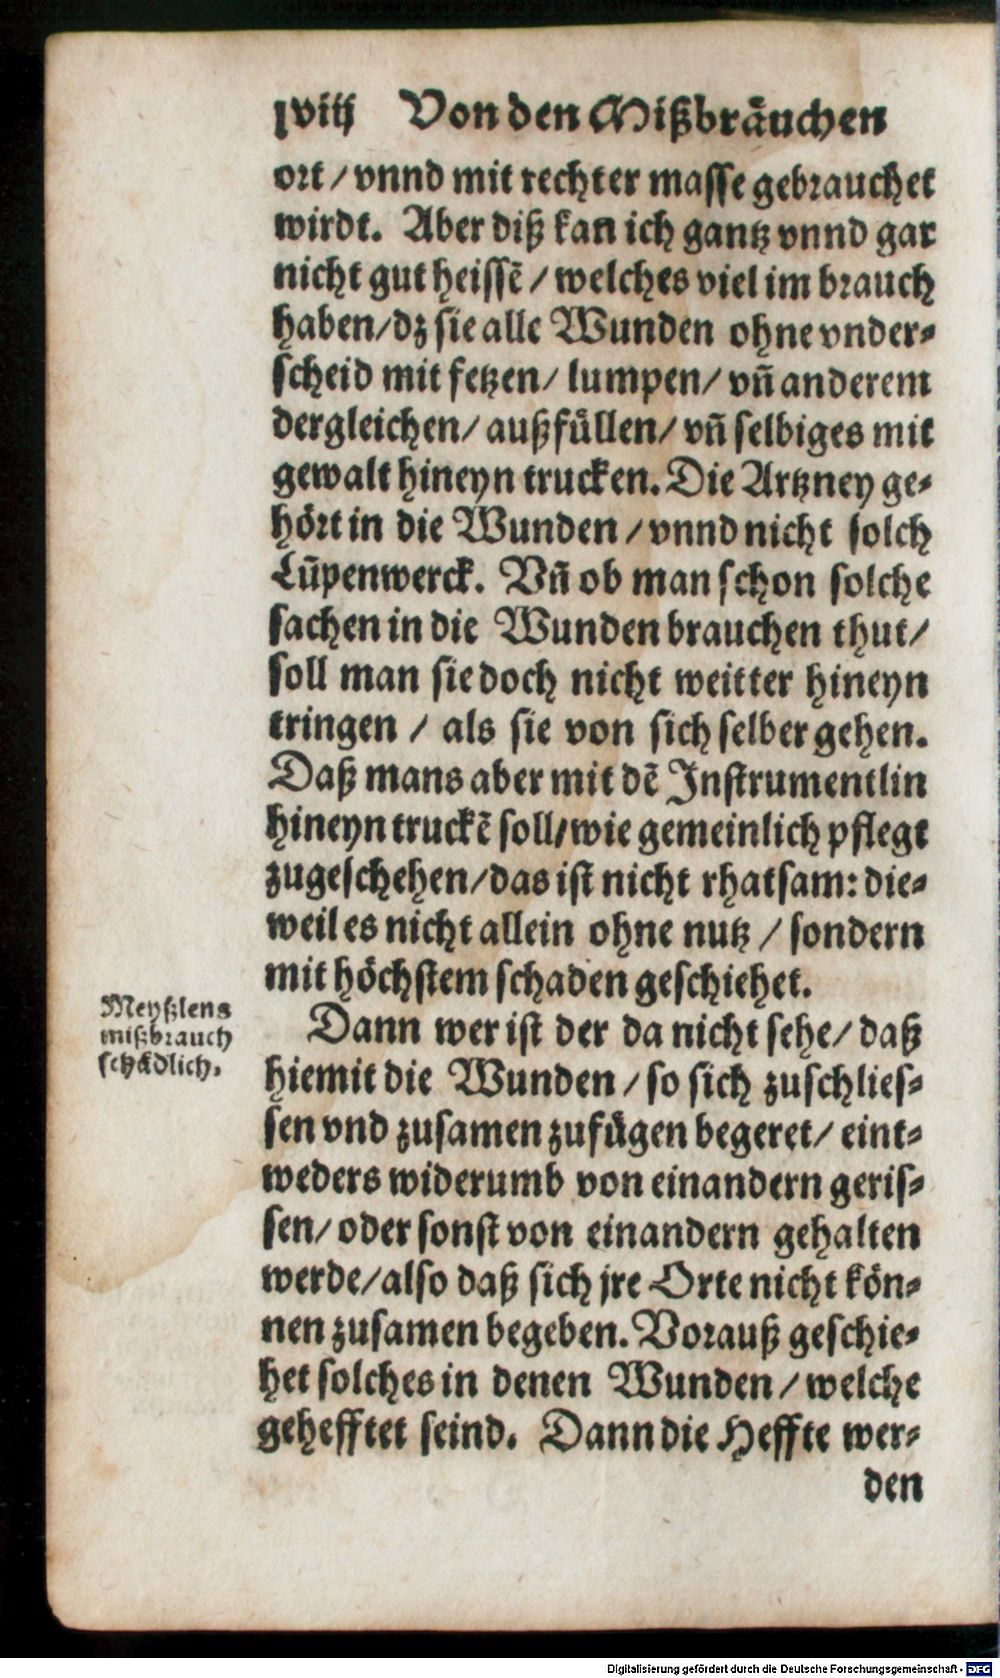 lviij Von den Mißbräuchen
ort / vnnd mit rechter masse gebrauchet
wirdt. Aber diß kan ich gantz vnnd gar
nicht gut heissẽ / welches viel im brauch
haben / dz sie alle Wunden ohne vnder-
scheid mit fetzen / lumpen / vñ anderem
dergleichen / außfüllen / vñ selbiges mit
gewalt hineyn trucken. Die Artzney ge-
hört in die Wunden / vnnd nicht solch
Lũpenwerck. Vñ ob man schon solche
sachen in die Wunden brauchen thut /
soll man sie doch nicht weitter hineyn
tringen / als sie von sich selber gehen.
Daß mans aber mit dẽ Instrumentlin
hineyn truckẽ soll / wie gemeinlich pflegt
zugeschehen / das ist nicht rhatsam: die-
weil es nicht allein ohne nutz / sondern
mit höchstem schaden geschiehet.
Meyßlens
mißbrauch
schädlich.
Dann wer ist der da nicht sehe / daß
hiemit die Wunden / so sich zuschlies-
sen vnd zusamen zufügen begeret / eint-
weders widerumb von einandern geris-
sen / oder sonst von einandern gehalten
werde / also daß sich jre Orte nicht kön-
nen zusamen begeben. Vorauß geschie-
het solches in denen Wunden / welche
gehefftet seind. Dann die Heffte wer-
den
Digitalisierung gefördert durch die Deutsche Forschungsgemeinschaft - DFG